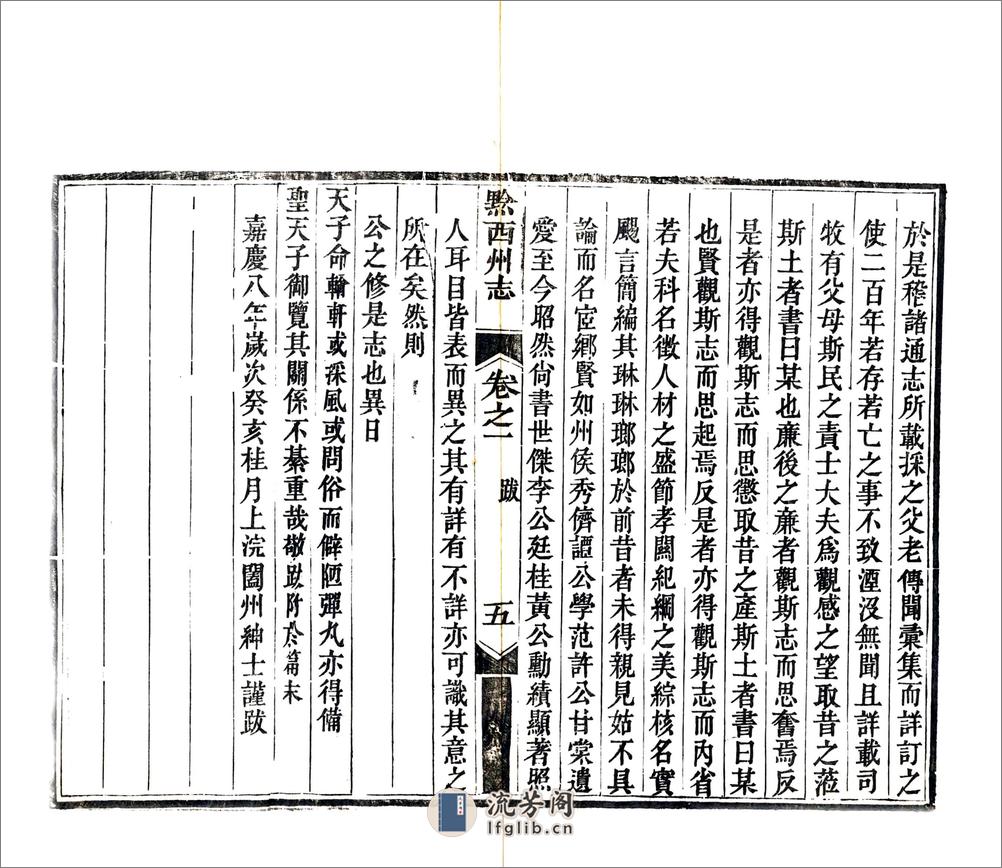 於是稽諸通志所載採之父老傳聞彙集而詳訂之
使二百年若存若亡之事不致湮沒無聞且詳載司
牧有父母斯民之責士大夫爲觀感之望取昔之蒞
斯土者書曰某也廉後之廉者觀斯志而思奮焉反
是者亦得觀斯志而思懲取昔之產斯土者書曰某
也賢觀斯志而思起焉反是者亦得觀斯志而內省
若夫科名徵人材之盛節孝關紀綱之美綜核名實
颺言簡編其琳琳瑯瑯於前昔者未得親見姑不具
論而名宦鄉賢如州侯秀儕譚公學范許公甘棠遺
愛至今昭然尙書世傑李公廷桂黃公勳績顯著照
黔西州志
卷之一
跋
五
人耳目皆表而異之其有詳有不詳亦可識其意之
所在矣然則
公之修是志也異日
天子命輶軒或採風或問俗而僻陋彈丸亦得備
聖天子御覽其關係不綦重哉敬跋附於篇末
嘉慶八年歲次癸亥桂月上浣闔州紳士謹跋
流芳阁
lfglib.cn